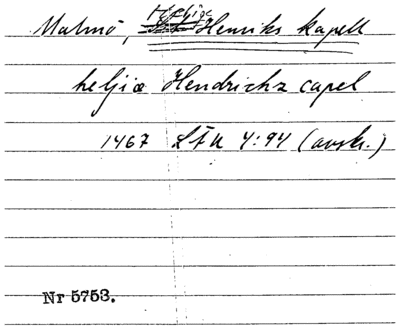 Malmö, Helige Henriks kapell
heliæ Hendrichz capel
1467 LfU 4:94 (avskr.)
Nr 5753.